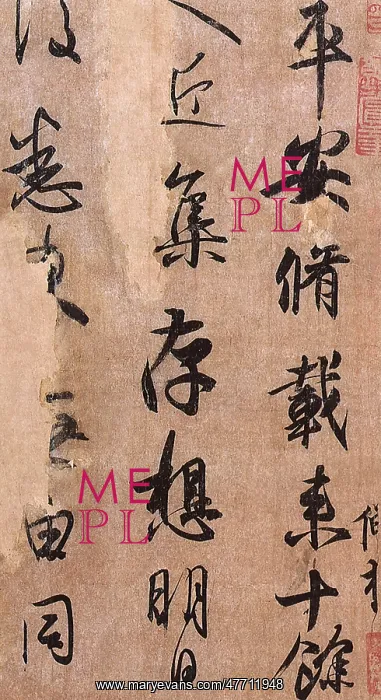 平安脩載来十餘
人近集存想明日
復悉来无由同
ME
PL
ME
PL
www.maryevans.com/47711948